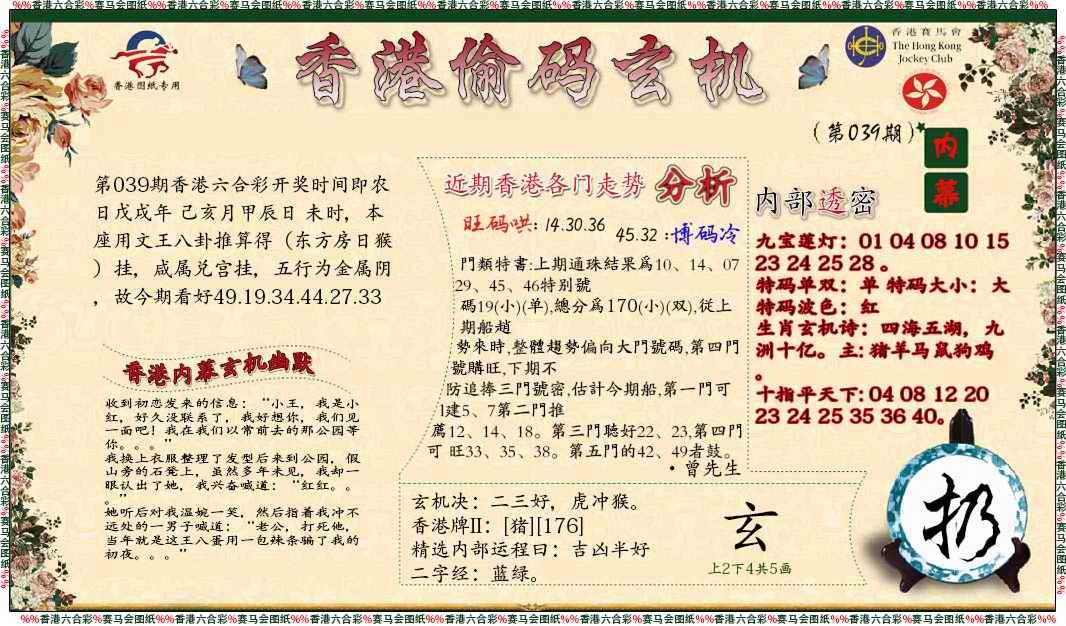 %%香港六合彩%赛马会图纸%%香港六合彩%赛马会图纸%%香港六合彩%赛马会图纸%%香港六合彩%赛马会图纸%%香港六合彩%赛马会图纸%%香港六合彩%%
香港图纸专用
香港偷码玄机
香港賽馬會
The Hong Kong
Jockey Club
(第039期)
内幕
第039期香港六合彩开奖时间即农
日戊戌年 己亥月甲辰日 未时，本
座用文王八卦推算得（东方房日猴
）挂，咸属兑宫挂，五行为金属阴
，故今期看好49.19.34.44.27.33
香港内幕玄机幽默
收到初恋发来的信息：“小王，我是小
红，好久没联系了，我好想你，我们见
一面吧！我在我们以常前去的那公园等
你。。。”
我换上衣服整理了发型后来到公园，假
山旁的石凳上，虽然多年未见，我却一
眼认出了她，我兴奋喊道：“红红。。
。”
她听后对我温婉一笑，然后指着我冲不
远处的一男子喊道：“老公，打死他，
当年就是这王八蛋用一包辣条骗了我的
初夜。。。”
近期香港各门走势 分析
旺码哄: 14.30.36
45.32 :博码冷
門類特書:上期通珠結果爲10、14、07
29、45、46特别號
碼19(小)(单),總分爲170(小)(双),從上
期船趙
勢來時,整體趨勢偏向大門號碼,第四門
號購旺,下期不
防追捧三門號密,估計今期船,第一門可
1建5、7第二門推
薦12、14、18。第三門聽好22、23,第四門
可 旺33、35、38。第五門的42、49者鼓。
•曾先生
玄机决：二三好，虎冲猴。
香港牌II：[猪][176]
精选内部运程曰：吉凶半好
二字经：蓝绿。
玄
上2下4共5画
内部透密
九宝莲灯：01 04 08 10 15
23 24 25 28 。
特码单双：单 特码大小：大
特码波色：红
生肖玄机诗：四海五湖，九
洲十亿。主: 猪羊马鼠狗鸡
。
十指平天下: 04 08 12 20
23 24 25 35 36 40。
扔
%%香港六合彩%赛马会图纸%%香港六合彩%赛马会图纸%%香港六合彩%赛马会图纸%%香港六合彩%赛马会图纸%%香港六合彩%赛马会图纸%%香港六合彩%%